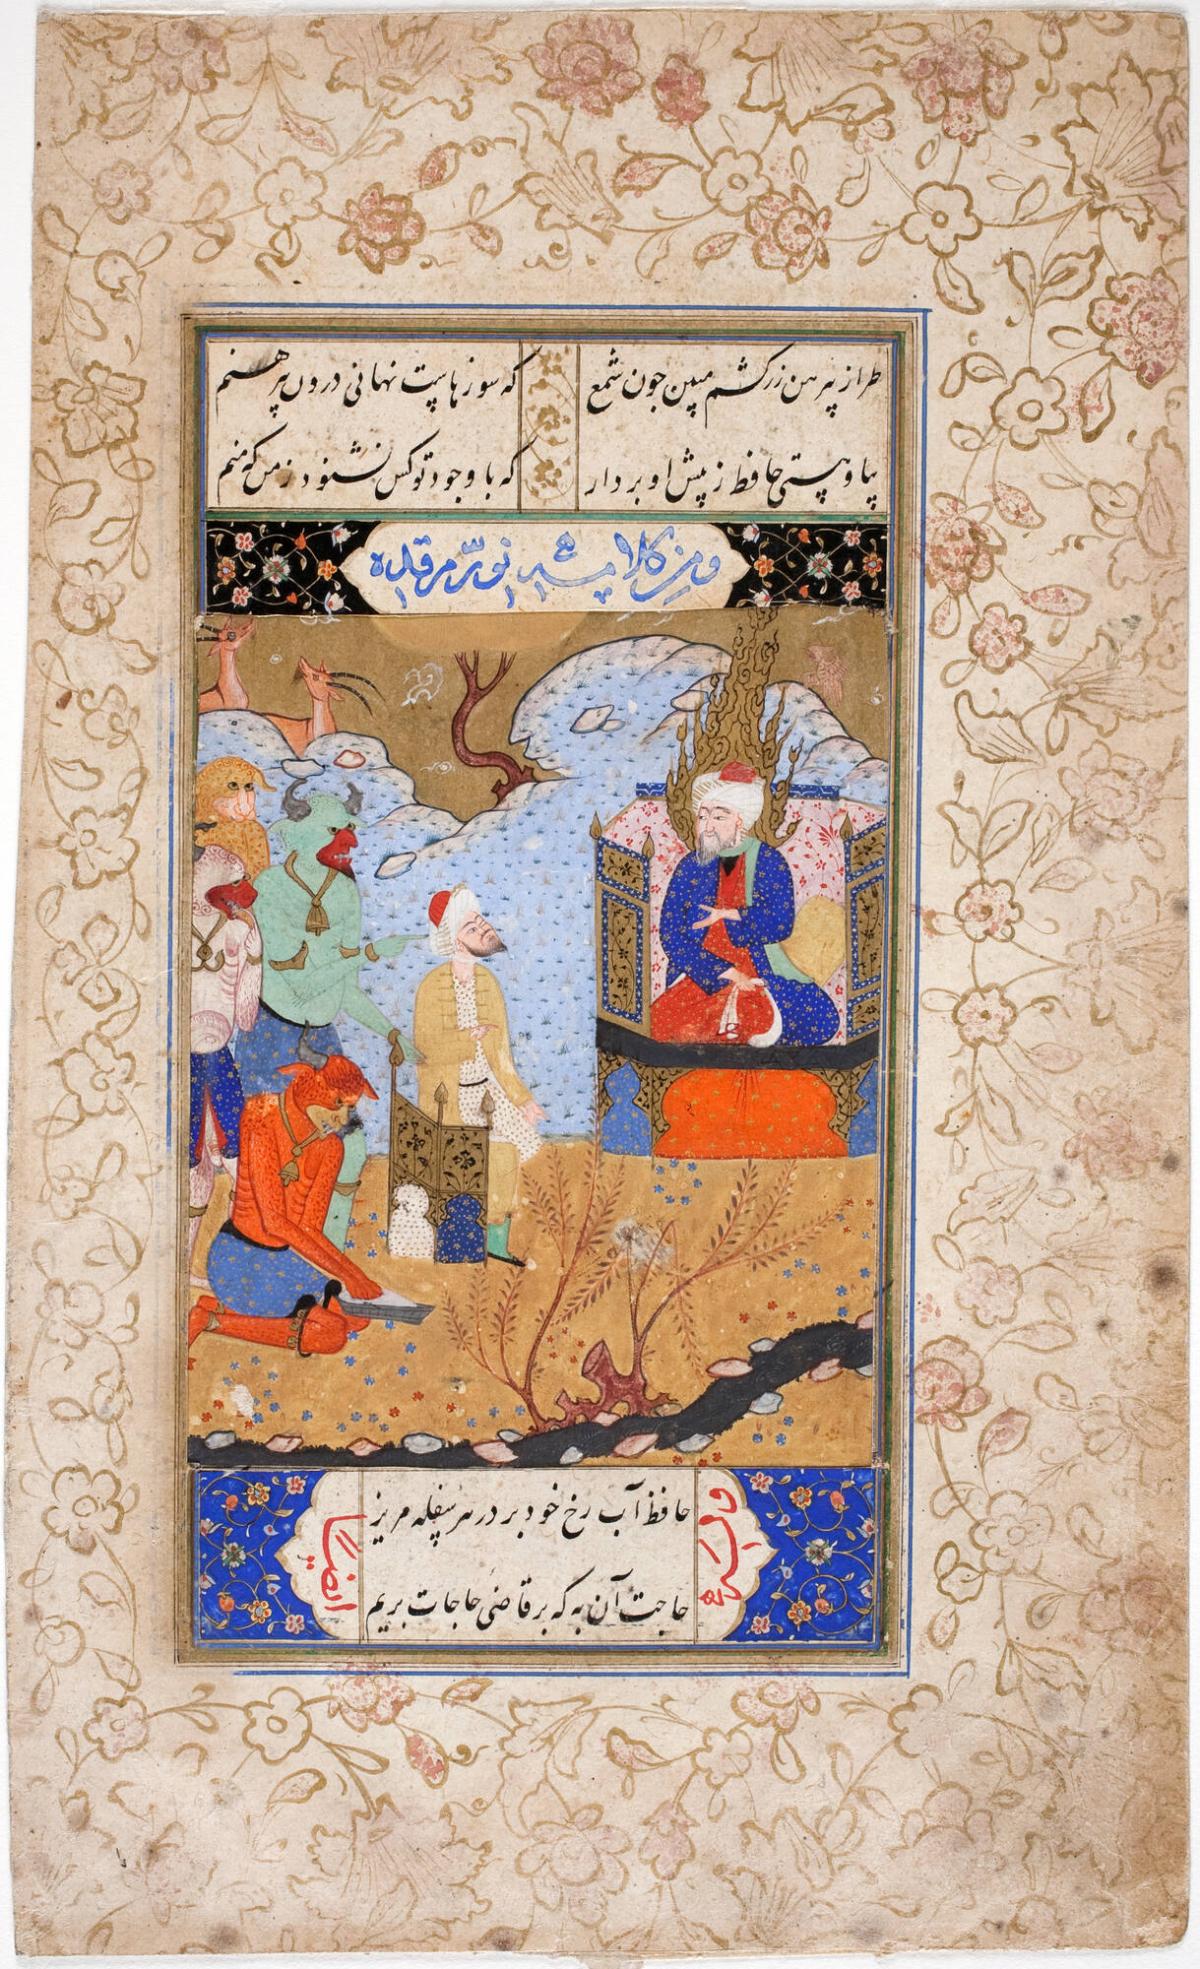 طراز پیرهن زرکشم مبین چون شمع
که سوزهاست نهانی درون پیرهنم
بیا و هستی حافظ ز پیش او بردار
که با وجود تو کس نشنود ز من که منم
و من کلامه نور مرقده
حافظ آب رخ خود بر در هر سفله مریز
حاجت آن به که بر قاضی حاجات بریم
وله
ایضا